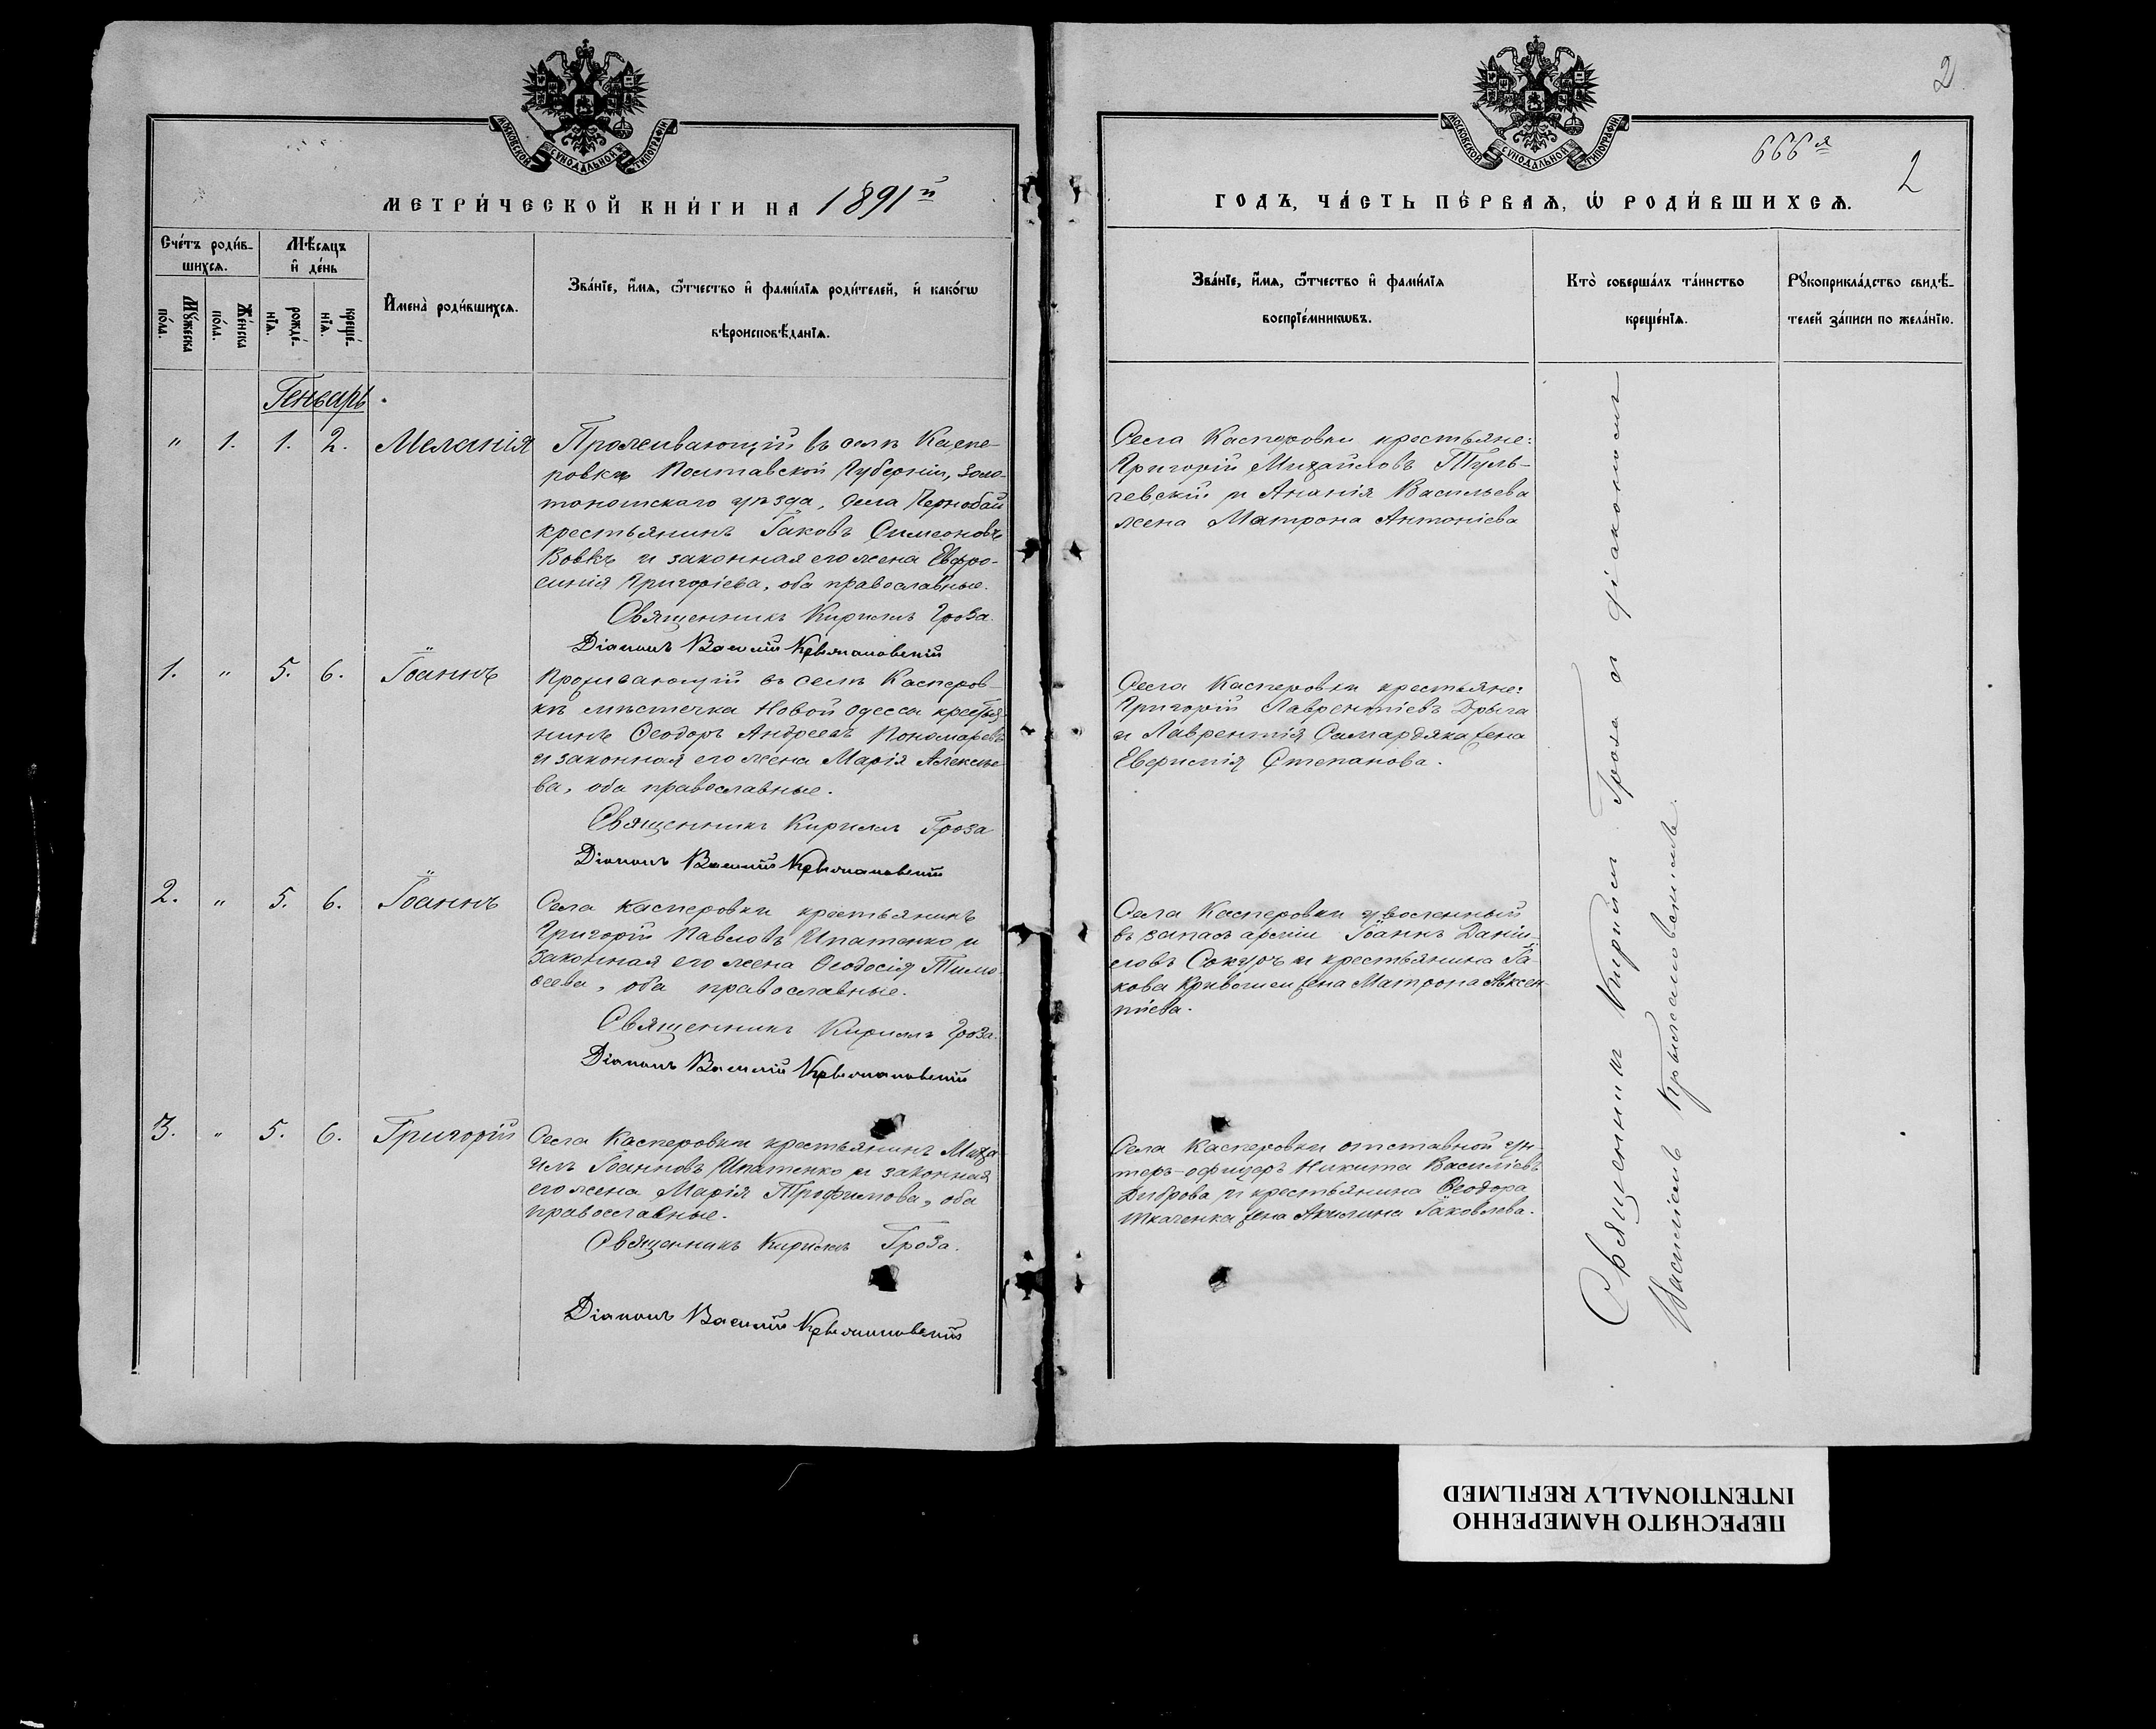 МОСКОВСКОЙ СУНОДАЛЬНОЙ ТИПОГРАФІИ
МЕТРИ́ЧЕСКОЙ КНИ́ГИ НА 1891й
Сче́тъ роди́в-
шихсѧ.
Мꙋ́жеска
по́ла.
Же́нска
по́ла.
Мѣ́сѧцъ
и҆ де́нь
рожде́-
нїѧ.
креще́-
нїѧ.
И҆мена̀ роди́вшихсѧ.
Зва́нїе, и҆́мѧ, ѻ҆́тчество и҆ фами́лїѧ роди́телей, и҆ како́гѡ
вѣроисповѣ́данїѧ.
Генварь.
" 1. 1. 2. Меланія
Проживающій въ селѣ Каспе-
ровкѣ Полтавской Губерніи, Золо-
тоношскаго уѣзда, села Чернобай
крестьянинъ Іаковъ Симеоновъ
Вовкъ и законная его жена Евфро-
синія Григоріева, оба православные.
Священникъ Кириллъ Гроза.
Діаконъ Василій Крыжановскій
1. " 5. 6. Іоаннъ
Проживающій въ селѣ Касперов-
кѣ мѣстечка Новой Одесса крестья-
нинъ Ѳеодоръ Андреевъ Пономаревъ
и законная его жена Марія Алексѣе-
ва, оба православные.
Священникъ Кириллъ Гроза
Діаконъ Василій Крыжановскій
2. " 5. 6. Іоаннъ
Села Касперовки крестьянинъ
Григорій Павловъ Ипатенко и
законная его жена Ѳеодосія Тимо-
ѳеева, оба православные.
Священникъ Кириллъ Гроза.
Діаконъ Василій Крыжановскій
3. " 5. 6. Григорій
Села Касперовки крестьянинъ Миха-
илъ Іоанновъ Ипатенко и законная
его жена Марія Трофимова, оба
православные.
Священникъ Кириллъ Гроза.
Діаконъ Василій Крыжановскій
2
666я
2
МОСКОВСКОЙ СУНОДАЛЬНОЙ ТИПОГРАФІИ
ГОДЪ, ЧА́СТЬ ПЕ́РВАѦ, Ѡ҆ РОДИ́ВШИХСѦ.
Зва́нїе, и҆́мѧ, ѻ҆́тчество и҆ фами́лїѧ
воспрїе́мникѡвъ.
Кто̀ соверша́лъ та́инство
креще́нїѧ.
Рꙋкоприкла́дство свидѣ́-
телей за́писи по жела́нїю.
Села Касперовки крестьяне:
Григорій Михайловъ Туль-
чевскій и Ананія Васильева
жена Матрона Антоніева
Села Касперовки крестьяне:
Григорій Лаврентіевъ Дрыга
и Лаврентія Самардяка жена
Евфимія Степанова.
Села Касперовки уволенный
въ запасъ арміи Іоаннъ Даніи-
ловъ Сокуръ и крестьянина Іа-
кова жена Матрона Авксен-
тіева.
Села Касперовки отставной ун-
теръ-офицеръ Никита Василіевъ
Диброва и крестьянина Ѳеодора
Ткаченка жена Акилина Іаковлева.
Священникъ Кириллъ Гроза съ діакономъ
Василіемъ Крыжановскимъ.
ПЕРЕСНЯТО НАМЕРЕННО
INTENTIONALLY REFILMED